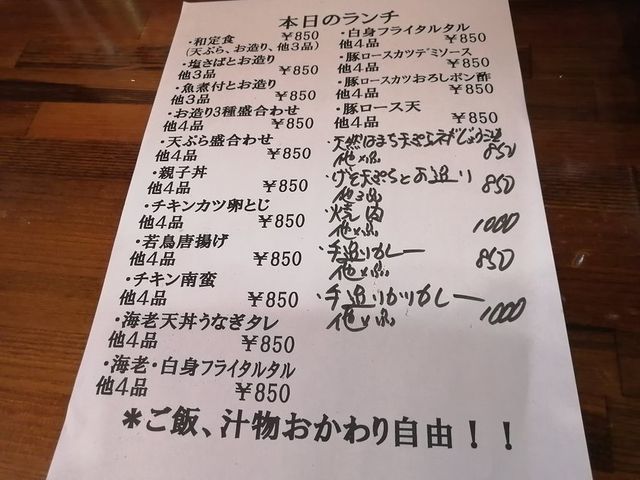 本日のランチ
・和定食 ￥850
(天ぷら、お造り、他3品)
・塩さばとお造り
他3品 ￥850
・魚煮付とお造り
他3品 ￥850
・お造り3種盛合わせ
他4品 ￥850
・天ぷら盛合わせ
他4品 ￥850
・親子丼
他4品 ￥850
・チキンカツ卵とじ
他4品 ￥850
・若鳥唐揚げ
他4品 ￥850
・チキン南蛮
他4品 ￥850
・海老天丼うなぎタレ
他4品 ￥850
・海老・白身フライタルタル
他4品 ￥850
・白身フライタルタル
他4品 ￥850
・豚ロースカツデミソース
他4品 ￥850
・豚ロースカツおろしポン酢
他4品 ￥850
・豚ロース天
他4品 ￥850
・天然はまち天ぷらネギじょうゆ
他4品 850
・げそ天ぷらとお造り
他3品 850
・焼肉
他4品 1000
・手造りカレー
他4品 850
・手造りカツカレー
他4品 1000
＊ご飯、汁物おかわり自由！！